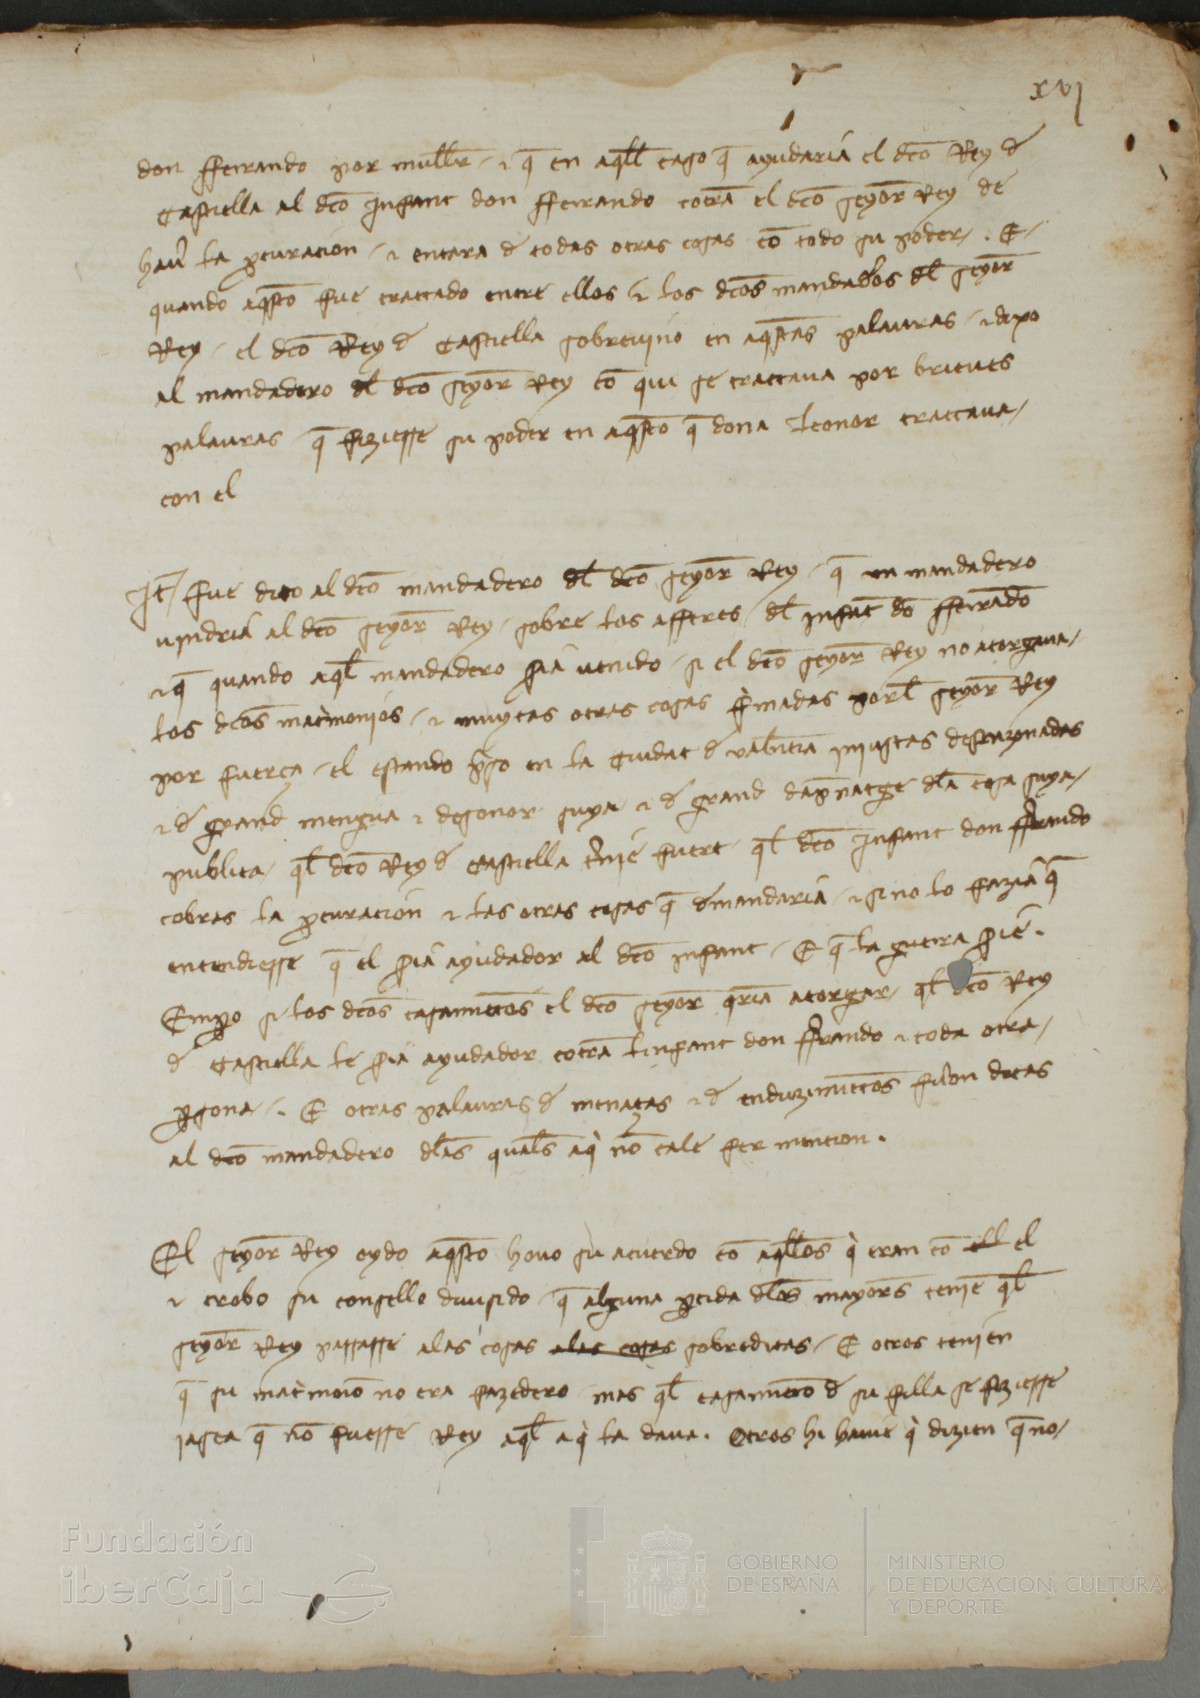 xvj
don fferrando por mull̄r / ⁊ q̄ en aq̄ll caso q̄ ayudaria el dc̄o Rey d̄
Castiella al dc̄o Infant don fferrando cōtra el dc̄o seyor̄ Rey de
hau̾ la p̱curacion / ⁊ encara d̄ todas otras cosas cō todo su poder / . E /
quando aq̄sto fue tractado entre ellos ⁊ los dc̄os mandad̾os dl̄ seyor̄
Rey / el dc̄o Rey d̄ Castiella sobreuino en aq̄stas palauras / ⁊ dixo
al mandadero dl̄ dc̄o seyor̄ Rey cō qui se tractaua por breues
palauras q̄ fiziesse su poder en aq̄sto q̄ dona Leonor tractaua /
con el
It̄ / fue dito al dc̄o mandadero dl̄ dc̄o seyor̄ Rey / q̄ un mandadero
vindria al dc̄o seyor̄ Rey / sobre los afferes / dl̄ infāt dō fferrādo
⁊ q̄ quando aq̄l mandadero s̾ia uenido / si el dc̄o seyor̄ Rey no atorgaua /
los dc̄os mat̾monios / ⁊ muytas otras cosas f̾madas por l̄ seyor̄ Rey
por fuerça / el estando p̾so en la Ciudat d̄ valēcia injustas desrazonadas
⁊ d̄ grand mengua ⁊ desonor suya ⁊ d̄ grand dap̄natge dl̄a cosa suya /
publica / ql̄ dc̄o Rey d̄ Castiella t̾nie fuert ql̄ dc̄o Infant don ff̾rando
cobras la p̱curacion ⁊ las otras cosas q̄ d̄mandaria / ⁊ si no lo fazia q̄
entendiesse q̄ el s̾ia ayudador al dc̄o infant / E q̄ la guerra s̾ie .
Emp̱o si los dc̄os casamiētos el dc̄o seyor̄ q̾ria atorgar / ql̄ dc̄o Rey
d̄ Castiella le s̾ia ayudador cōtra linfant don ff̾rando ⁊ toda otra /
p̱sona / . E otras palauras d̄ menaças ⁊ d̄ enduzimiētos fu̾on ditas
al dc̄o mandadero dl̄as qual̄s aq̾ nō cale fer mencion .
El seyor̄ Rey oydo aq̄sto houo su acuerdo cō aq̄llos q̾ eran cō ell el
⁊ trobo su consello diuisido / q̄ alguna p̱tida dl̄os mayor̄s tenie ql̄
seyor̄ Rey passasse a las cosas a las cosas sobreditas / E otros tenien
q̄ su mat̾monio no era fazedero / mas ql̄ casamiēto d̄ su filla se fiziesse
jasea q̄ nō fuesse Rey aq̄l a q̾ la daua . Otros hi hauie q̾ dizien q̄ no /
Fundación
iberCaja
GOBIERNO
DE ESPAÑA
MINISTERIO
DE EDUCACIÓN, CULTURA
Y DEPORTE